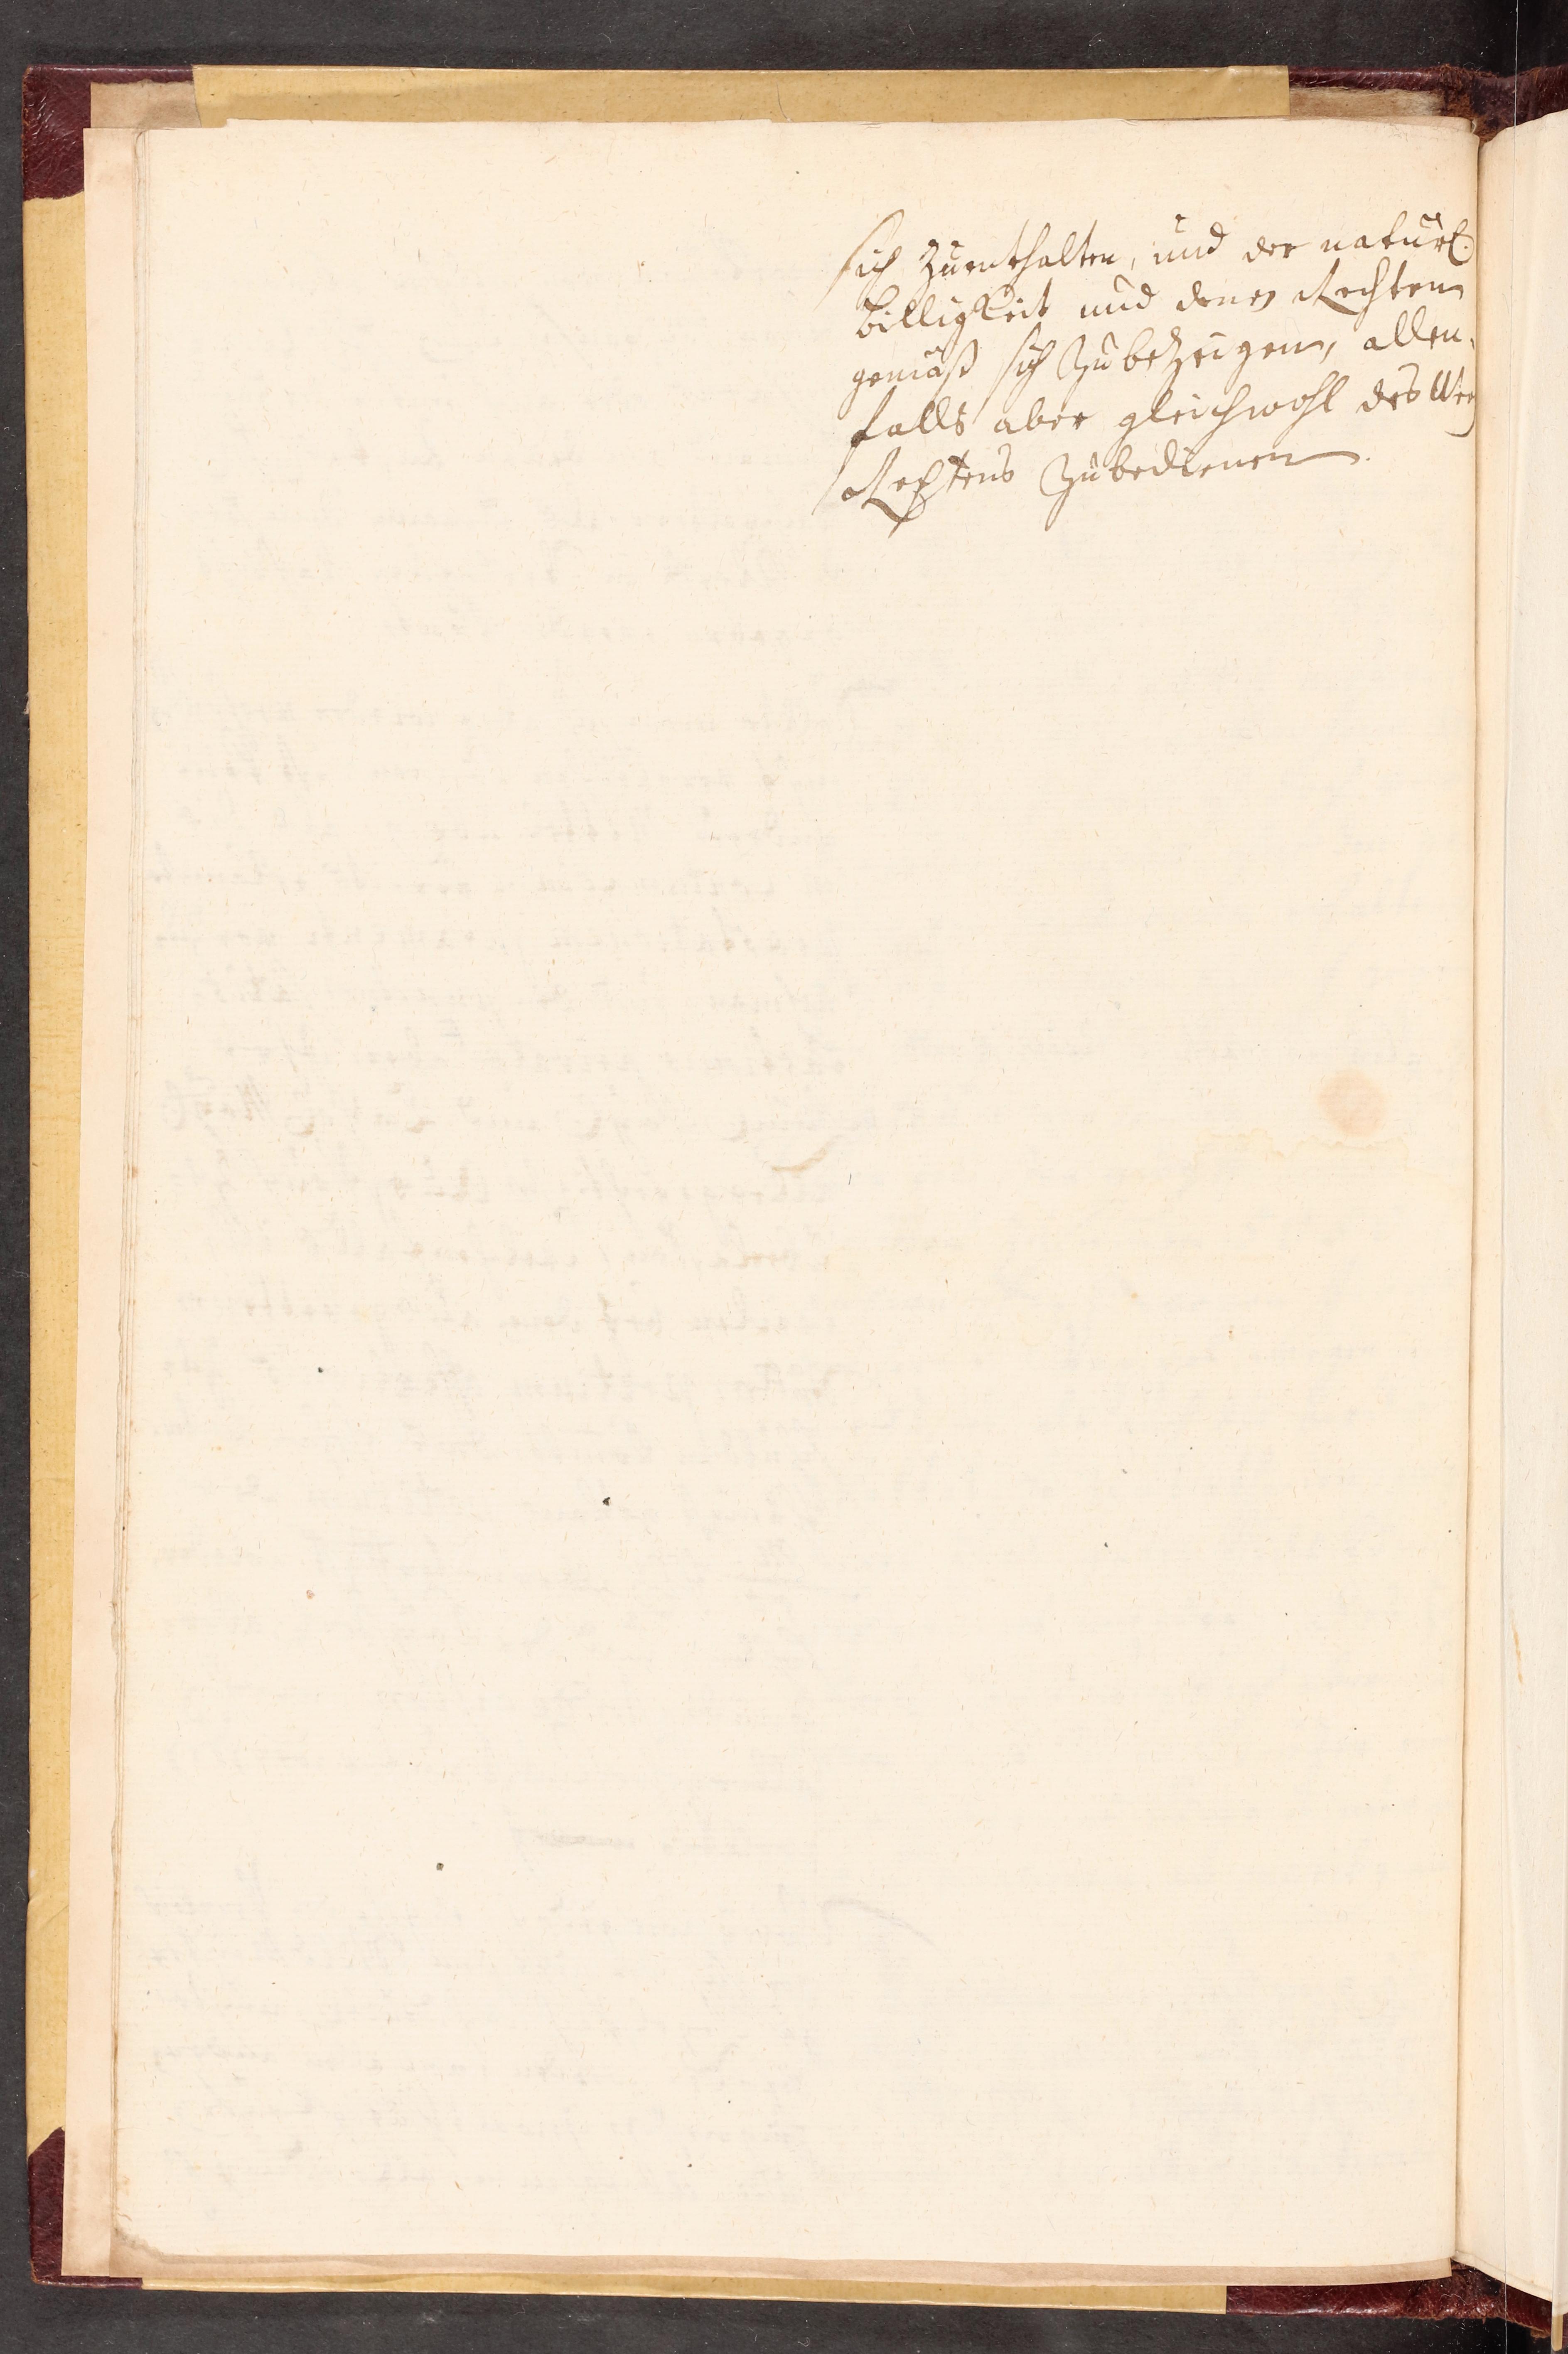 sich Zuenthalten, und der natürl.
billigkeit und denen Rechten
gemäß sich Zubezeigen, allen,
falls aber gleichwohl des Weeg
Rechtens Zubedienen.